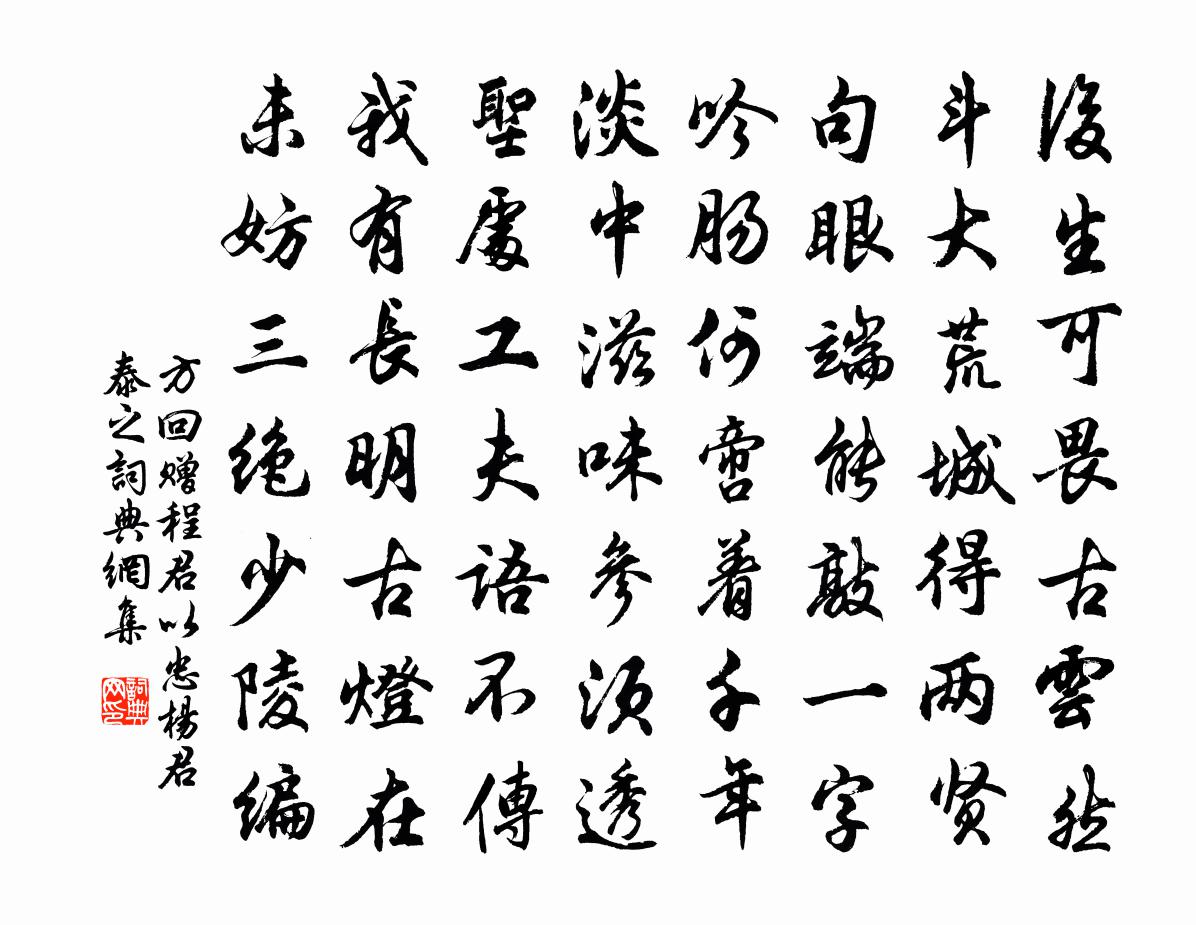 後生可畏古雲然
斗大荒城得两贤
句眼端能敲一字
吟肠何啻着千年
淡中滋味參须透
聖處工夫語不傳
我有長明古燈在
未妨三绝少陵編
方回赠程君以忠楊君
泰之詞典網集
詞典网印